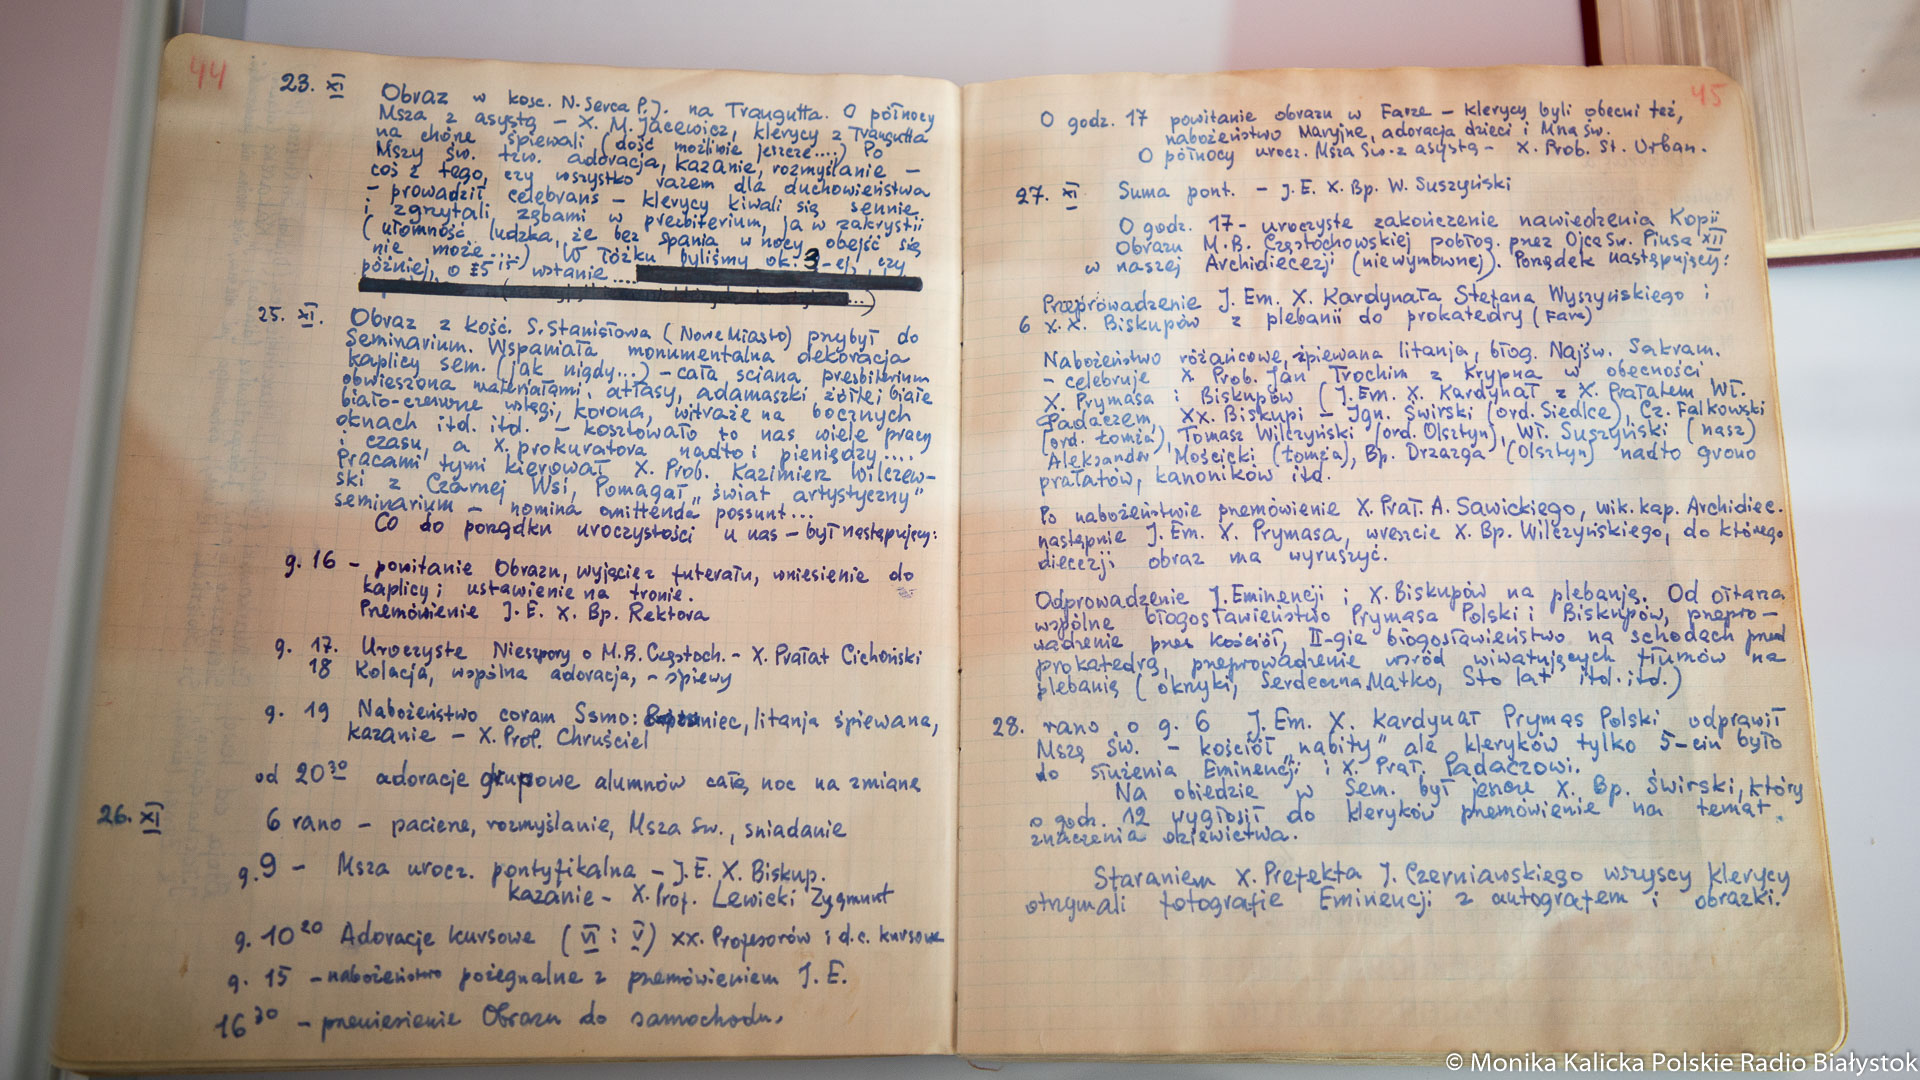 44
23. XI Obraz w kosc. N. Serca P.J. na Traugutta. O północy
Msza z asystą – X. M. Jacewicz, klerycy z Traugutta
na chórze śpiewali (dość możliwie jeszcze....) Po
Mszy św. tzw. adoracja, kazanie, rozmyślanie –
coś z tego, czy wszystko razem dla duchowieństwa
– prowadził celebrans – klerycy kiwali się sennie
i zgrzytali zębami w prezbiterium, ja w zakrystii
(ułomność ludzka, że bez spania w nocy obejść się
nie może...) W łóżku byliśmy ok. 3-ej, czy
później, o wstanie .....
...)
25. XI. Obraz z kość. S. Stanisława (Nowe Miasto) przybył do
Seminarium. Wspaniała monumentalna dekoracja
kaplicy sem. (jak nigdy...) – cała sciana presbiterium
obwieszona materiałami, atłasy, adamaszki żółte i białe
biało-czerwone wstęgi, korona, witraże na bocznych
oknach itd. itd. – kosztowało to nas wiele pracy
i czasu, a X. prokuratora nadto i pieniędzy....
Pracami tymi kierował X. Prob. Kazimierz Wilczew-
ski z Czarnej Wsi, Pomagał „świat artystyczny"
seminarium – nomina omittenda possunt...
Co do porządku uroczystości u nas – był następujący:
g. 16 – powitanie Obrazu, wyjęcie z futerału, wniesienie do
kaplicy i ustawienie na tronie.
Przemówienie J. E. X. Bp. Rektora
g. 17. Uroczyste Nieszpory o M.B. Częstoch. – X. Prałat Cichoński
18 Kolacja, wspólna adoracja, – śpiewy
g. 19 Nabożeństwo coram Ssmo: Różaniec, litanja śpiewana,
kazanie – X. Prof. Chruściel
od 20 30 adoracje grupowe alumnów całą noc na zmianę
26. XI 6 rano – pacierze, rozmyślanie, Msza św., sniadanie
g. 9 – Msza urocz. pontyfikalna – J.E. X. Biskup.
kazanie – X. Prof. Lewicki Zygmunt
g. 10 20 Adoracje kursowe (VI i V) XX. Profesorów i d.c. kursowe
g. 15 – nabożeństwo pożegnalne z przemówieniem J. E.
16 30 – przeniesienie Obrazu do samochodu.
45
O godz. 17 powitanie obrazu w Farze – klerycy byli obecni też,
nabożeństwo Maryjne, adoracja dzieci i Msza św.
O północy urocz. Msza Św. z asystą – X. Prob. St. Urban.
27. XI Suma pont. – J. E. X. Bp. W. Suszyński
O godz. 17 – uroczyste zakończenie nawiedzenia Kopii
Obrazu M.B. Częstochowskiej pobłog. przez Ojca Św. Piusa XII
w naszej Archidiecezji (niewymownej). Porządek następujący:
Przeprowadzenie J. Em. X. Kardynała Stefana Wyszyńskiego i
6 X.X. Biskupów z plebanii do prokatedry (Fara)
Nabożeństwo różańcowe, śpiewana litanja, błog. Najśw. Sakram.
– celebruje X. Prob. Jan Trochim z Krypna w obecności
X. Prymasa i Biskupów (J. Em. X. Kardynał z X. Prałatem Wł.
Padaczem, XX. Biskupi – Ign. Świrski (ord. Siedlce), Cz. Falkowski
(ord. Łomża), Tomasz Wilczyński (ord. Olsztyn), Wł. Suszyński (nasz)
Aleksander Mościcki (Łomża), Bp. Drzazga (Olsztyn) nadto grono
prałatów, kanoników itd.
Po nabożeństwie przemówienie X. Prał. A. Sawickiego, wik. kap. Archidiec.
następnie J. Em. X. Prymasa, wreszcie X. Bp. Wilczyńskiego, do którego
diecezji obraz ma wyruszyć.
Odprowadzenie J. Eminencji i X. Biskupów na plebanję. Od ołtarza
wspólne błogosławieństwo Prymasa Polski i Biskupów, przepro-
wadzenie przez Kościół, II-gie błogosławieństwo na schodach przed
prokatedrą, przeprowadzenie wśród wiwatujących tłumów na
plebanię (okrzyki, Serdeczna Matko, Sto lat itd. itd.)
28. rano o g. 6 J. Em. X. Kardynał Prymas Polski odprawił
Mszę Św. – kościół „nabity" ale kleryków tylko 5-ciu było
do służenia Eminencji i X. Prał. Padaczowi.
Na obiedzie w Sem. był jeszcze X. Bp. Świrski, który
o godz. 12 wygłosił do kleryków przemówienie na temat
znaczenia dziewictwa.
Staraniem X. Prefekta J. Czerniawskiego wszyscy klerycy
otrzymali fotografie Eminencji z autografem i obrazki.
© Monika Kalicka Polskie Radio Białystok